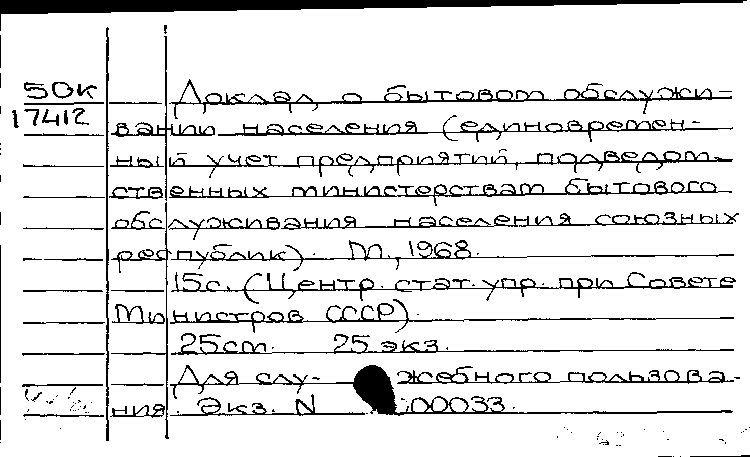 50к
17412
Доклад о бытовом обслужи-
вании населения (единовремен-
ный учет предприятий, подведом-
ственных министерствам бытового
обслуживания населения союзных
республик). М., 1968.
15с. (Центр. стат. упр. при Совете
Министров СССР).
25см. 25 экз.
Для слу- жебного пользова-
ния. Экз. N 00033.